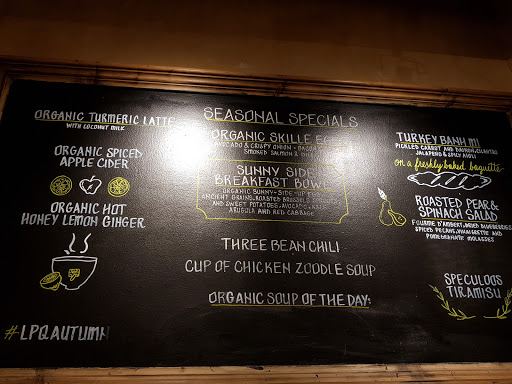 SEASONAL SPECIALS
ORGANIC TURMERIC LATTE
WITH COCONUT MILK
ORGANIC SPICED
APPLE CIDER
ORGANIC HOT
HONEY LEMON GINGER
#LPQAUTUMN
ORGANIC SKILLE
AVOCADO & CRISPY ONION • BACON
SMOKED SALMON &
SUNNY SIDE
BREAKFAST BOWL
ORGANIC SUNNY-SIDE-UP
ANCIENT GRAINS, ROASTED BRUSSELS
AND SWEET POTATOES, AVOCADO,
ARUGULA AND RED CABBAGE
THREE BEAN CHILI
CUP OF CHICKEN ZOODLE SOUP
ORGANIC SOUP OF THE DAY:
TURKEY BANH MI
PICKLED CARROT AND DAIKON, CILANTRO
JALAPEÑO & SPICY AIOLI
on a freshly baked baguette
ROASTED PEAR &
SPINACH SALAD
FOURME D'AMBERT, DRIED BLUEBERRIES
SPICED PECANS, VINAIGRETTE AND
POMEGRANATE MOLASSES
SPECULOUS
TIRAMISU